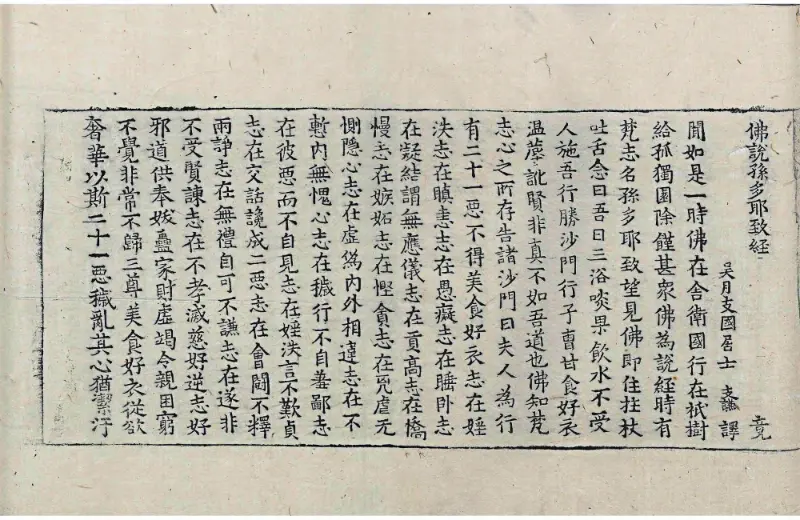 佛說孫多耶致經 竟
吴月支國居士 支謙 譯
聞如是一時佛在舍衛國行在祇樹
給孤獨園除饉甚衆佛為說經時有
梵志名孫多耶致望見佛即住拄杖
吐舌念曰吾日三浴啖果飲水不受
人施吾行勝沙門行子曹甘食好衣
温蓐訛賢非真不如吾道也佛知梵
志心之所存告諸沙門曰夫人為行
有二十一悪不得美食好衣志在婬
泆志在瞋恚志在愚癡志在睡卧志
在凝結謂無應儀志在貢高志在憍
慢志在嫉妬志在慳貪志在兇虐无
惻隐心志在虚偽内外相違志在不
慙内無愧心志在穢行不自羞鄙志
在彼悪而不自見志在婬泆言不歎貞
志在交話讒成二悪志在會鬪不釋
兩諍志在無禮自可不謙志在遂非
不受賢諫志在不孝滅慈好逆志好
邪道供奉妖蠱家財虚竭令親困窮
不覺非常不歸三尊美食好衣從欲
奢華以斯二十一悪穢亂其心猶潔汙